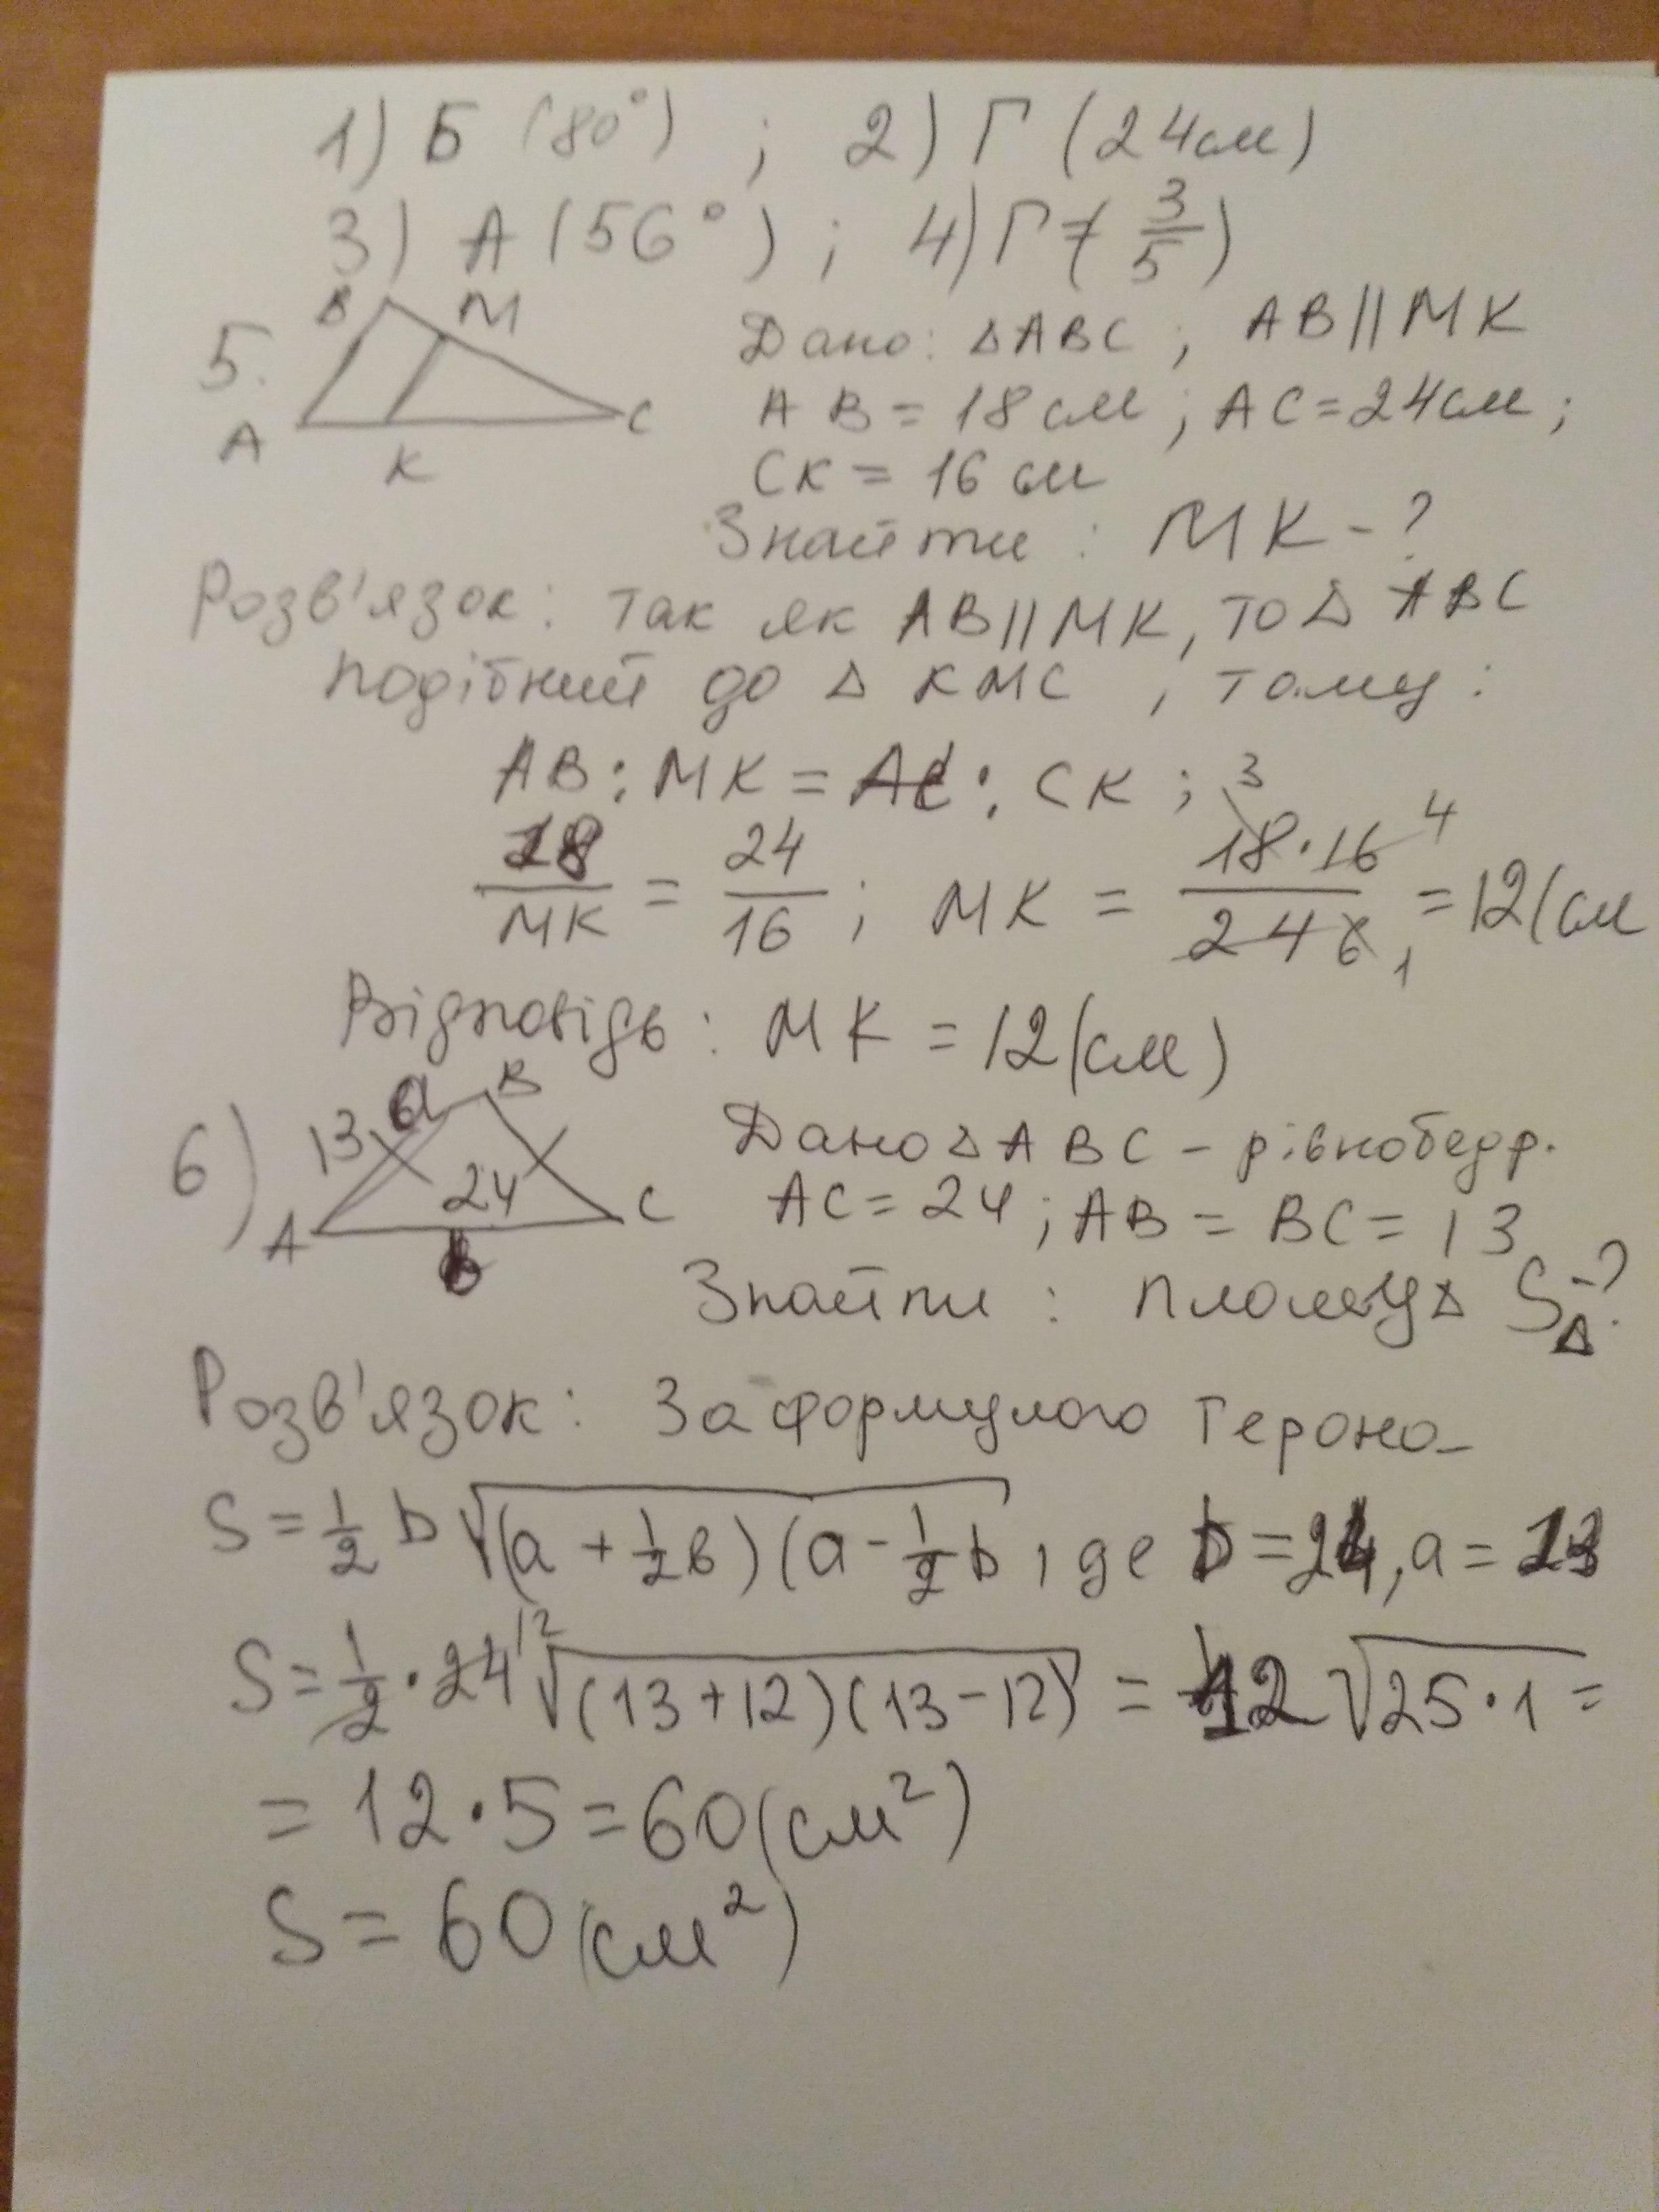 1) Б (80°) ; 2) Г (24см)
3) А (56°) ; 4) Г (3/5)
5.
B M
A K C
Дано: △ABC ; AB || MK
AB = 18 см ; AC = 24 см ;
CK = 16 см
Знайти : MK - ?
Розв'язок : так як AB || MK, то △ ABC
подібний до △ KMC , тому :
AB : MK = AC : CK ;
18/MK = 24/16 ; MK = 18·16/24 = 12 (см
3 4
6 1
Відповідь : MK = 12 (см)
6)
13 a B
24
A C
b
Дано △ ABC - рівнобедр.
AC = 24 ; AB = BC = 13
Знайти : площу △ S△ - ?
Розв'язок : За формулою Герона -
S = 1/2 b √(a + 1/2 b) (a - 1/2 b , де b = 24, a = 13
S = 1/2 · 24 12 √(13 + 12) (13 - 12) = 12 √25 · 1 =
= 12 · 5 = 60 (см²)
S = 60 (см²)